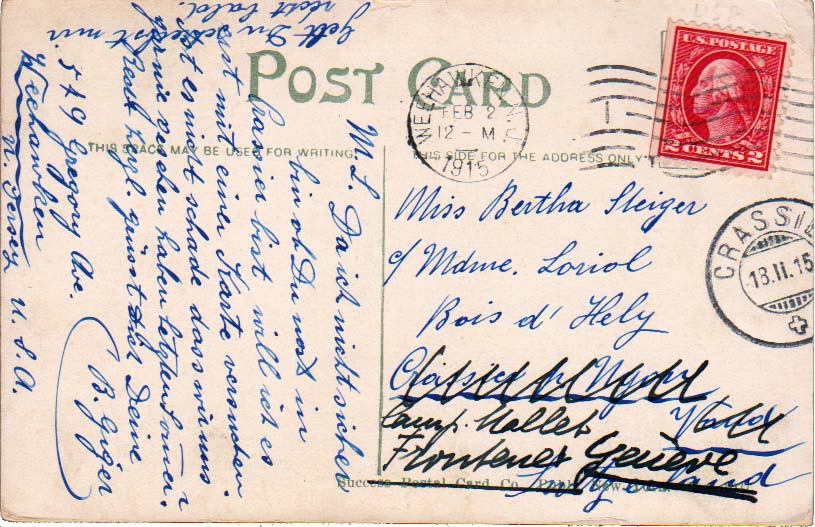 POST CARD
THIS SPACE MAY BE USED FOR WRITING.
THIS SIDE FOR THE ADDRESS ONLY
WEEHAWKEN N.J.
FEB 2
12 - M
1915
U.S. POSTAGE
2 CENTS 2
CRASSIE
18.II.15
M. L. Da ich nicht sicher
bin ob Du noch in
Crassier bist will ich es
erst mit einer Karte versuchen.
Ist es nicht schade dass wir uns
gar nie gesehen haben letzten Sommer.
Recht herzl. grüsst Dich Deine
B. Giger
549 Gregory Ave.
Weehawken
N. Jersey U. S. A.
Gelt Du schreibst mir
recht bald.
Miss Bertha Steiger
c/ Mdme. Loriol
Bois d' Hely
Vaud
Camp. Mallet
Frontenex Genève
Success Postal Card Co.